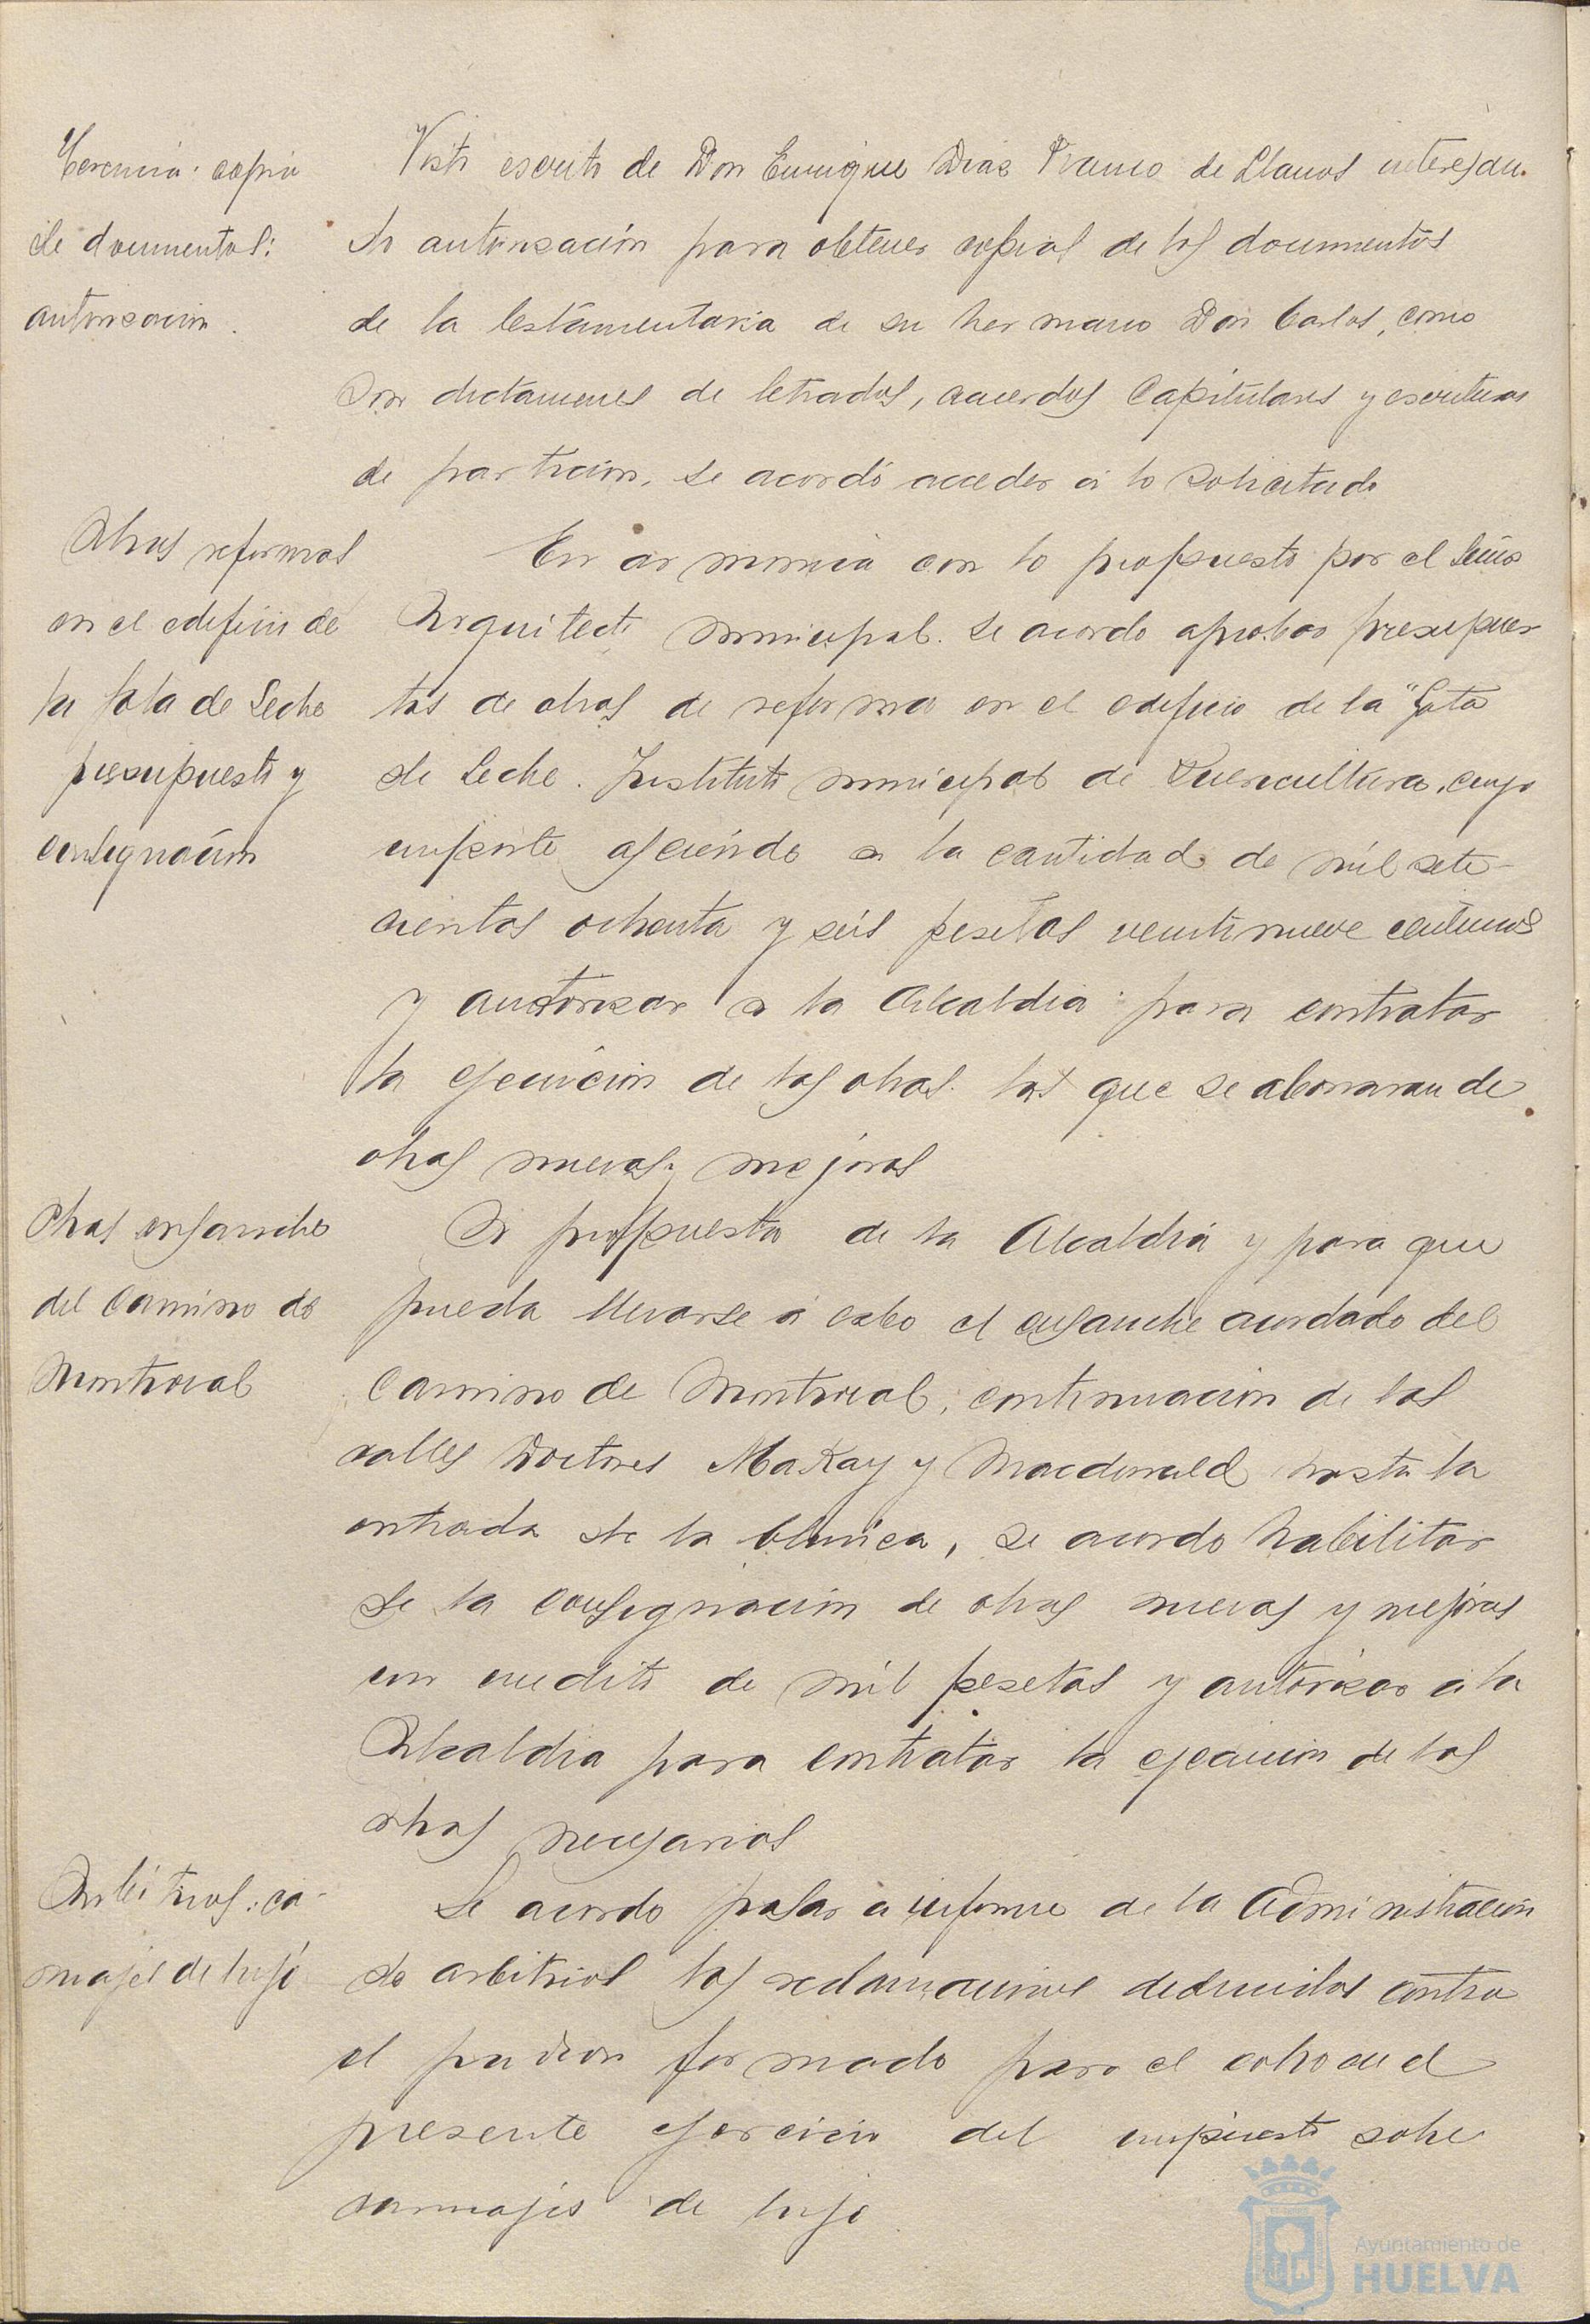 Herencia: copia
de documentos:
autorización.
Visto escrito de Don Enrique Diaz Franco de Llanos interesan-
do autorización para obtener copias de los documentos
de la testamentaria de su hermano Don Carlos, como
son dictamenes de letrados, acuerdos Capitulares y escrituras
de partición, se acordó acceder á lo solicitado
Obras reformas
en el edificio de
la Gota de Leche
presupuesto y
consignación
En armonia con lo propuesto por el Señor
Arquitecto municipal. se acordo aprobar presupues-
tos de obras de reforma en el edificio de la "Gota
de Leche. Instituto municipal de Puericultura, cuyo
importe asciende a la cantidad de mil sete-
cientos ochenta y seis pesetas veintinueve centimos
y autorizar a la Alcaldia para contratar
la ejecución de las obras. las que se abonaran de
obras nuevas y mejoras
Obras ensanche
del Camino de
Montrocal
A propuesta de la Alcaldia y para que
pueda llevarse á cabo el ensanche acordado del
Camino de Montrocal, continuacion de las
calles Doctores MaKay y Macdonald hasta la
entrada de la Clinica, se acordo habilitar
de la consignacion de obras nuevas y mejoras
un credito de mil pesetas y autorizar a la
Alcaldia para contratar la ejecucion de las
obras necesarias
Arbitrios: ca-
rruajes de lujo
Se acordo pasar a informe de la Administracion
de arbitrios las reclamaciones deducidas contra
el padron formado para el cobro en el
presente ejercicio del impuesto sobre
carruajes de lujo.
Ayuntamiento de
HUELVA